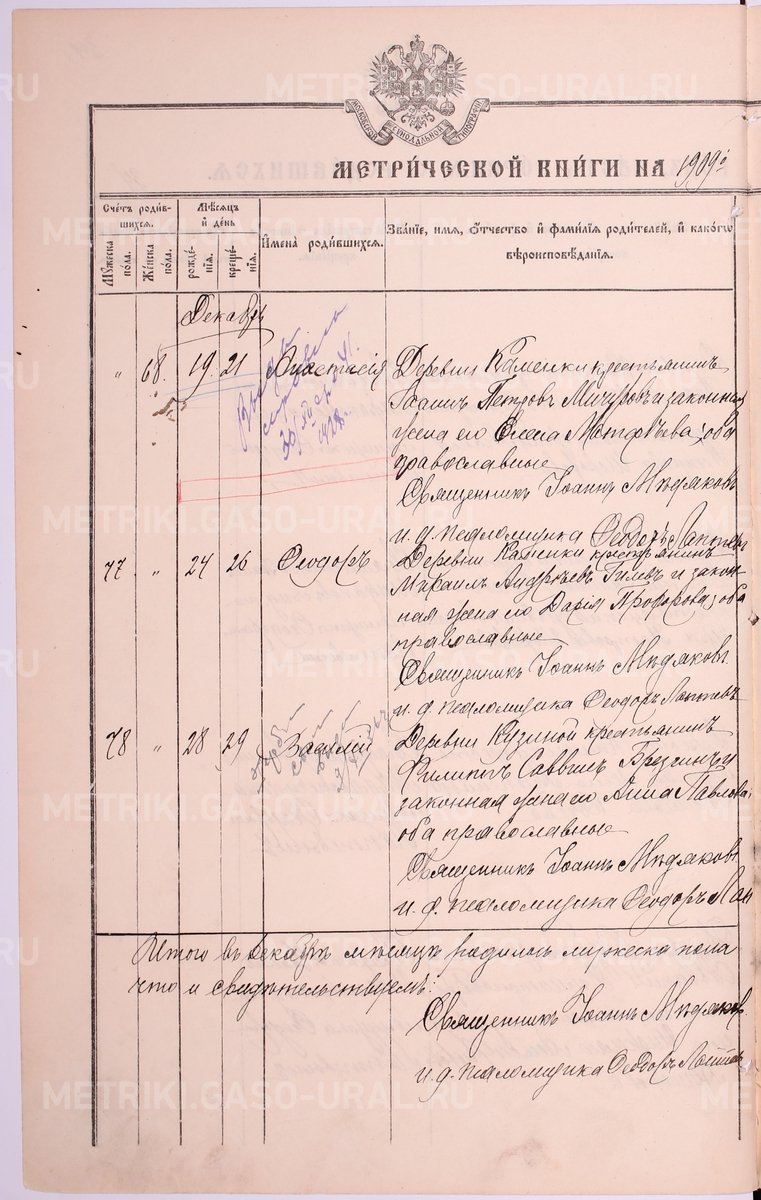 МОСКОВСКОЙ СѴНОДАЛЬНОЙ ТИПОГРАФІИ
МЕТРИ́ЧЕСКОЙ КНИ́ГИ НА 1909й
Сче́тъ роди́вшихся.
Му́жеска пола.
Же́нска пола.
Мѣ́сяцъ и де́нь
рожде́нія.
креще́нія.
Имена̀ роди́вшихся.
Зва́ніе, имя, ѻ́тчество и фами́лія роди́телей, и како́гѡ вѣроисповѣ́данія.
Декабрь
" 68. 19. 21 Анастасія Деревни Каменки крестьянинъ
Іоаннъ Петровъ Мичуровъ и законная
жена его Елена Матфѣева; оба
православные
Священникъ Іоаннъ Мѣдяковъ
и. д. псаломщика Ѳеодоръ Лаптевъ
77 " 24 26 Ѳеодоръ Деревни Каменки крестьянинъ
Михаилъ Андреевъ Гилевъ и закон-
ная жена его Дарія Прохорова; оба
православные
Священникъ Іоаннъ Мѣдяковъ
и. д. псаломщика Ѳеодоръ Лаптевъ
78 " 28 29 Василій Деревни Кузиной крестьянинъ
Филиппъ Саввинъ Брезгинъ и
законная жена его Анна Павлова;
оба православные
Священникъ Іоаннъ Мѣдяковъ
и. д. псаломщика Ѳеодоръ Лап
Итого въ декабрѣ мѣсяцѣ родилось мужеска пола
что и свидѣтельствуемъ:
Священникъ Іоаннъ Мѣдяковъ
и. д. псаломщика Ѳеодоръ Лаптевъ
METRIKI.GASO-URAL.RU